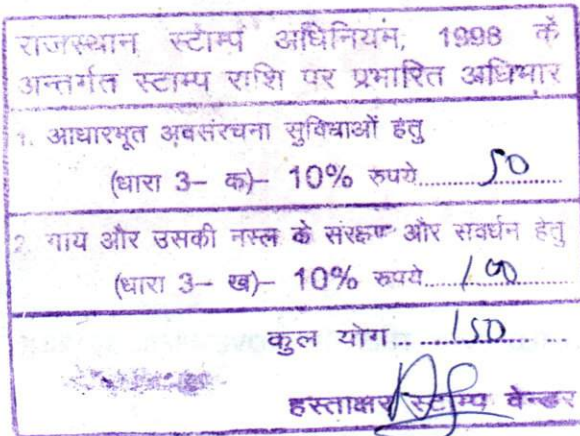 राजस्थान स्टाम्प अधिनियम, 1998 के
अन्तर्गत स्टाम्प राशि पर प्रभारित अधिभार
1. आधारभूत अवसंरचना सुविधाओं हेतु
(धारा 3- क)- 10% रुपये.......50
2. गाय और उसकी नस्ल के संरक्षण और संवर्धन हेतु
(धारा 3- ख)- 10% रुपये.......100
कुल योग.......150
हस्ताक्षर स्टाम्प वेन्डर